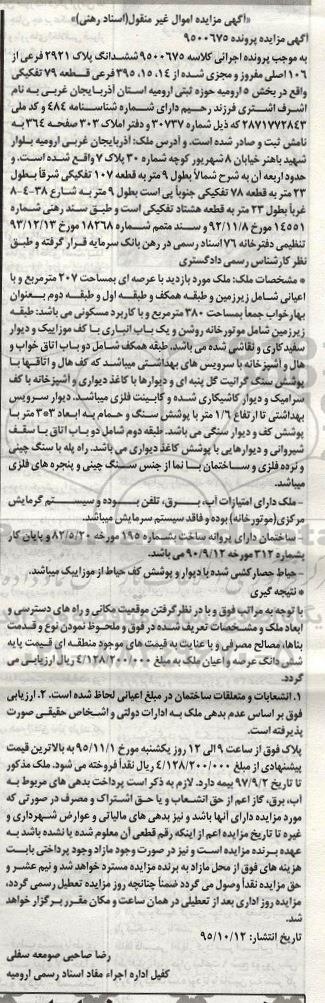 «آگهی مزایده اموال غیر منقول(اسناد رهنی)»
آگهی مزایده پرونده ۹۵۰۰۶۷۵
به موجب پرونده اجرائی کلاسه ۹۵۰۰۶۷۵ ششدانگ پلاک ۲۹۲۱ فرعی از
۱۰۶ اصلی مفروز و مجزی شده از ۱۴، ۱۵، ۳۹۵ فرعی قطعه ۷۹ تفکیکی
واقع در بخش ۵ ارومیه حوزه ثبتی ارومیه استان آذربایجان غربی به نام
اشرف اشتری فرزند رحیم دارای شماره شناسنامه ۴۸۴ و کد ملی
۲۸۷۱۷۷۲۸۴۳ که ذیل شماره ۳۰۷۳۷ و دفتر املاک ۳۰۳ صفحه ۳۶۴ به
نامش ثبت و صادر شده است. و آدرس ملک: آذربایجان غربی ارومیه بلوار
شهید باهنر خیابان ۸ شهریور کوچه شماره ۳۰ پلاک ۷ واقع شده است. و
حدود اربعه آن به شرح شمالاً بطول ۹ متر به قطعه ۱۰۷ تفکیکی شرقاً بطول
۲۳ متر به قطعه ۷۸ تفکیکی جنوباً پی است بطول ۹ متر به شارع ۳۸-۴-۸
غرباً بطول ۲۳ متر به قطعه هشتاد تفکیکی است و طبق سند رهنی شماره
۱۴۵۵۱ مورخ ۹۲/۱۱/۸ و سند متمم شماره ۱۸۲۶۸ مورخ ۹۳/۱۲/۱۳
تنظیمی دفترخانه ۷۶ اسناد رسمی در رهن بانک سرمایه قرار گرفته و طبق
نظر کارشناس رسمی دادگستری
* مشخصات ملک: ملک مورد بازدید با عرصه ای بمساحت ۲۰۷ مترمربع و با
اعیانی شامل زیرزمین و طبقه همکف و طبقه اول و طبقه دوم بعنوان
بهارخواب جمعاً بمساحت ۳۸۰ مترمربع و با کاربرد مسکونی می باشد: طبقه
زیرزمین شامل موتورخانه روشن و یک باب انباری با کف موزاییک و دیوار
سفیدکاری و نقاشی شده می باشد. طبقه همکف شامل دو باب اتاق خواب و
هال و آشپزخانه با سرویس های بهداشتی میباشد که کف هال و اتاقها با
پوشش سنگ گرانیت گل پنبه ای و دیوارها با کاغذ دیواری و آشپزخانه با کف
سرامیک و دیوار کاشیکاری شده و کابینت فلزی میباشد. دیوار سرویس
بهداشتی تا ارتفاع ۱/۶ متر با پوشش سنگ و حمام به ابعاد ۳*۳ متر با
پوشش کف و دیوار سنگی می باشد. طبقه دوم شامل دو باب اتاق با سقف
شیروانی و دیوارهایی با پوشش کاغذ دیواری می باشد. راه پله با سنگ چینی
و نرده فلزی و ساختمان با نما از جنس سنگ چینی و پنجره های فلزی
میباشد.
- ملک دارای امتیازات آب، برق، تلفن بوده و سیستم گرمایش
مرکزی(موتورخانه) بوده و فاقد سیستم سرمایش میباشد.
- ساختمان دارای پروانه ساخت بشماره ۱۹۵ مورخه ۸۲/۵/۲۰ و پایان کار
بشماره ۳۱۲ مورخه ۹۰/۹/۱۲ می باشد.
- حیاط حصارکشی شده با دیوار و پوشش کف حیاط از موزاییک میباشد.
* نتیجه گیری
با توجه به مراتب فوق و با در نظر گرفتن موقعیت مکانی و راه های دسترسی و
ابعاد ملک و مشخصات تعریف شده در فوق و ملحوظ نمودن نوع و قدمت
بناها، مصالح مصرفی و با عنایت به قیمت های موجود منطقه ای قیمت پایه
شش دانگ عرصه و اعیان ملک به مبلغ ۴/۱۲۸/۲۰۰/۰۰۰ ریال ارزیابی می
گردد.
۱. انشعابات و متعلقات ساختمان در مبلغ اعیانی لحاظ شده است. ۲. ارزیابی
فوق بر اساس عدم بدهی ملک به ادارات دولتی و اشخاص حقیقی صورت
پذیرفته است.
پلاک فوق از ساعت ۹ الی ۱۲ روز یکشنبه مورخ ۹۵/۱۱/۱ به بالاترین قیمت
پیشنهادی از مبلغ ۴/۱۲۸/۲۰۰/۰۰۰ ریال نقداً فروخته می شود. ملک مذکور
تا تاریخ ۹۷/۹/۲ بیمه دارد. لازم به ذکر است پرداخت بدهی های مربوط به
آب، برق، گاز اعم از حق انشعاب و یا حق اشتراک و مصرف در صورتی که
مورد مزایده دارای آنها باشد و نیز بدهی های مالیاتی و عوارض شهرداری و
غیره تا تاریخ مزایده اعم از اینکه رقم قطعی آن معلوم شده یا نشده باشد به
عهده برنده مزایده است و نیز در صورت وجود مازاد وجوه پرداختی بابت
هزینه های فوق از محل مازاد به برنده مزایده مسترد خواهد شد و نیم عشر و
حق مزایده نقداً وصول می گردد ضمناً چنانچه روز مزایده تعطیل رسمی گردد،
مزایده روز اداری بعد از تعطیلی در همان ساعت و مکان مقرر برگزار خواهد
شد.
تاریخ انتشار: ۹۵/۱۰/۱۲
رضا صاحبی صومعه سفلی
کفیل اداره اجراء مفاد اسناد رسمی ارومیه